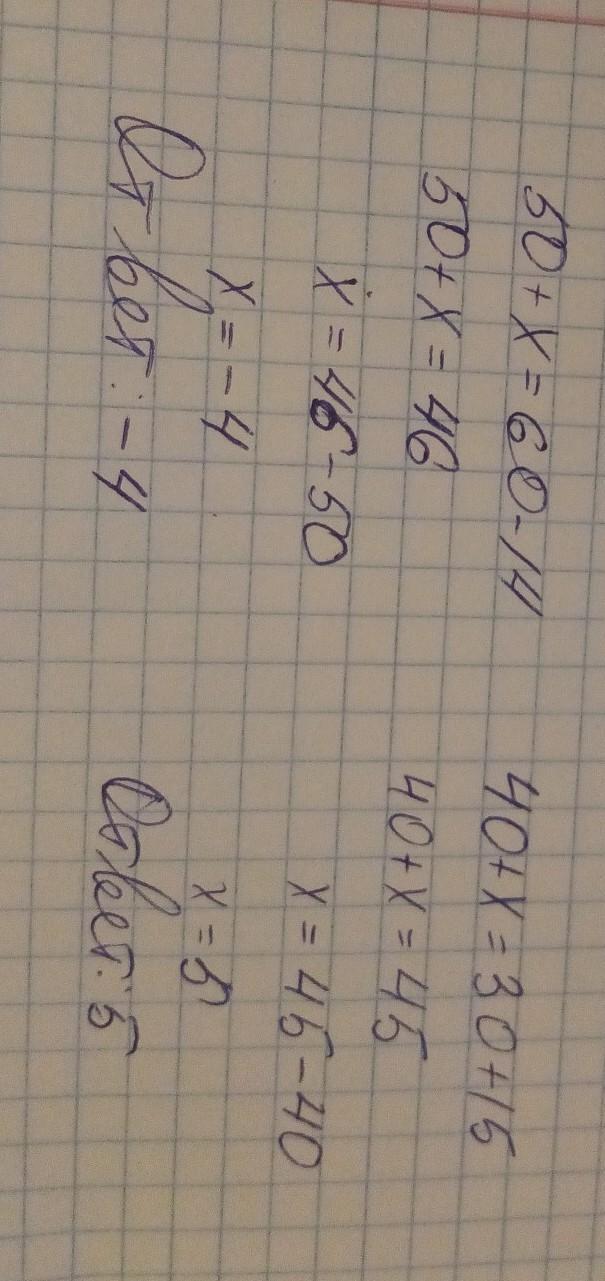 50 + x = 60 - 14
50 + x = 46
x = 46 - 50
x = -4
Ответ: -4
40 + x = 30 + 15
40 + x = 45
x = 45 - 40
x = 5
Ответ: 5